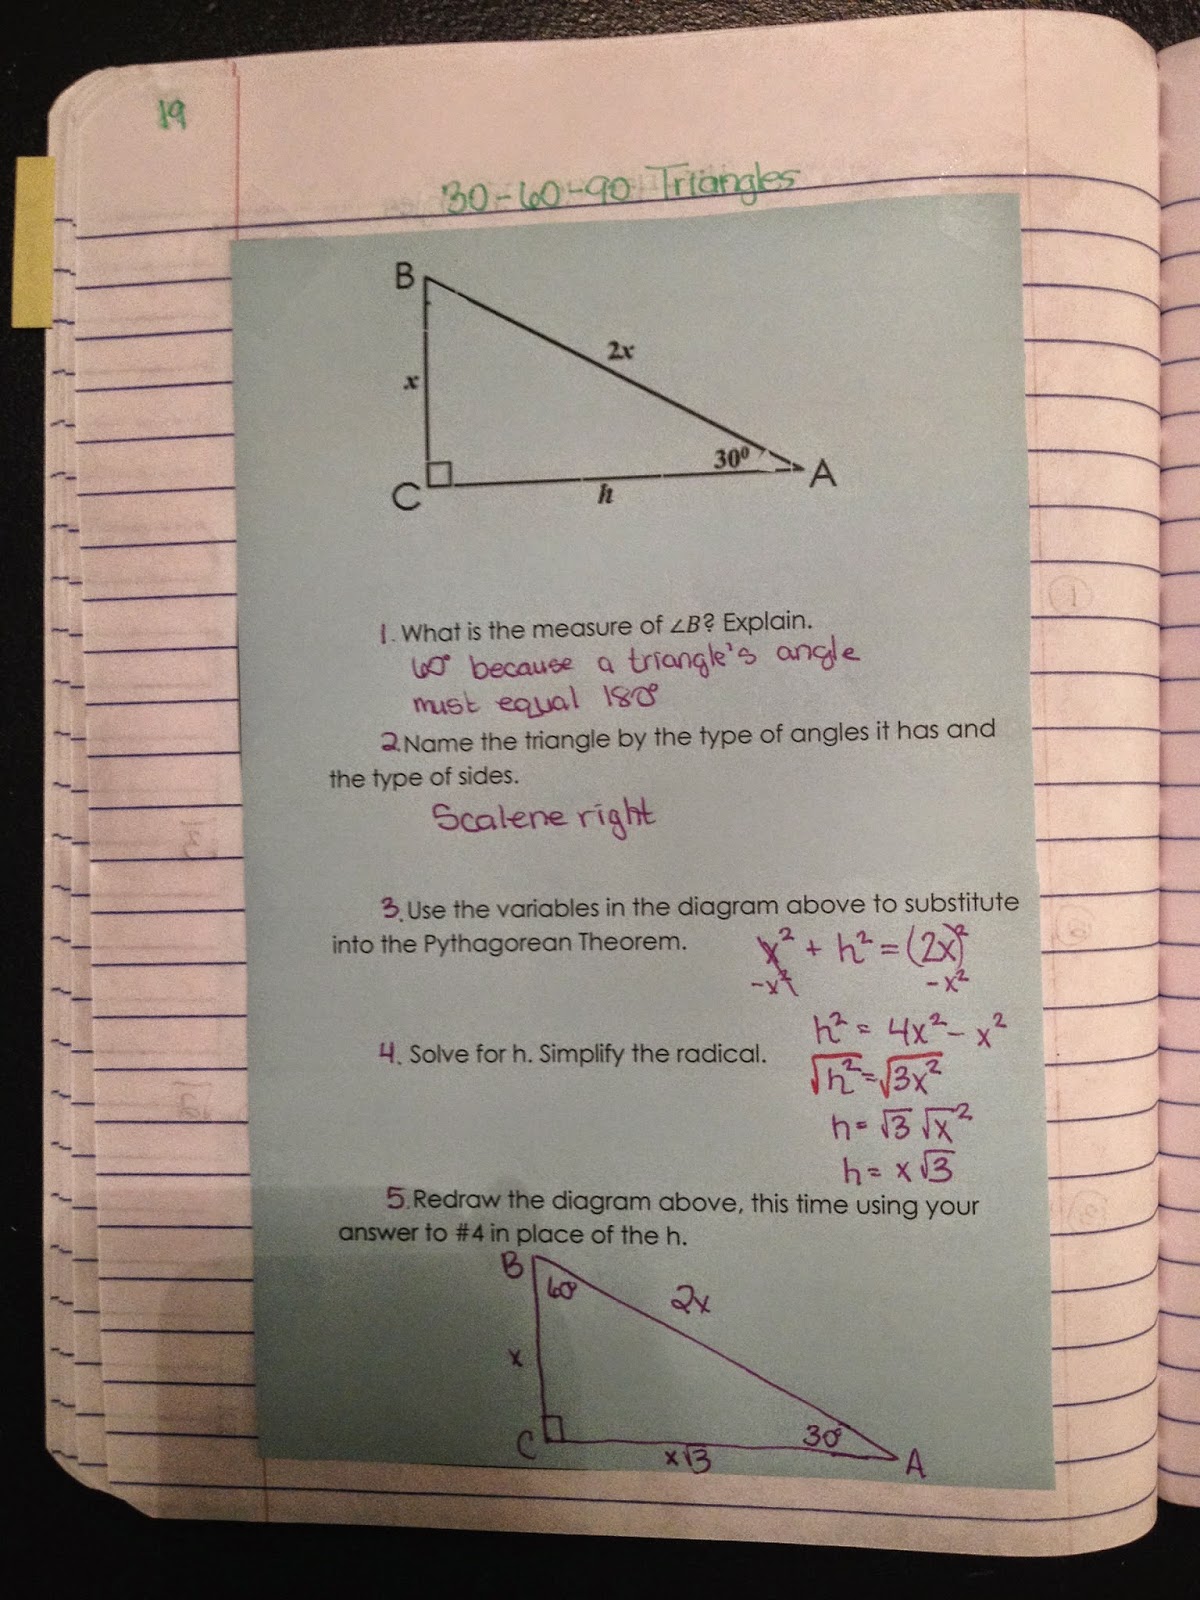 19
30-60-90 Triangles
B
2x
x
30⁰
C
h
A
1. What is the measure of ∠B? Explain.
60° because a triangle's angle
must equal 180°
2. Name the triangle by the type of angles it has and
the type of sides.
Scalene right
3. Use the variables in the diagram above to substitute
into the Pythagorean Theorem.
x² + h² = (2x)²
-x² -x²
h² = 4x² - x²
4. Solve for h. Simplify the radical.
√h² = √3x²
h = √3 √x²
h = x√3
5. Redraw the diagram above, this time using your
answer to #4 in place of the h.
B
60°
2x
x
C
30°
x√3
A